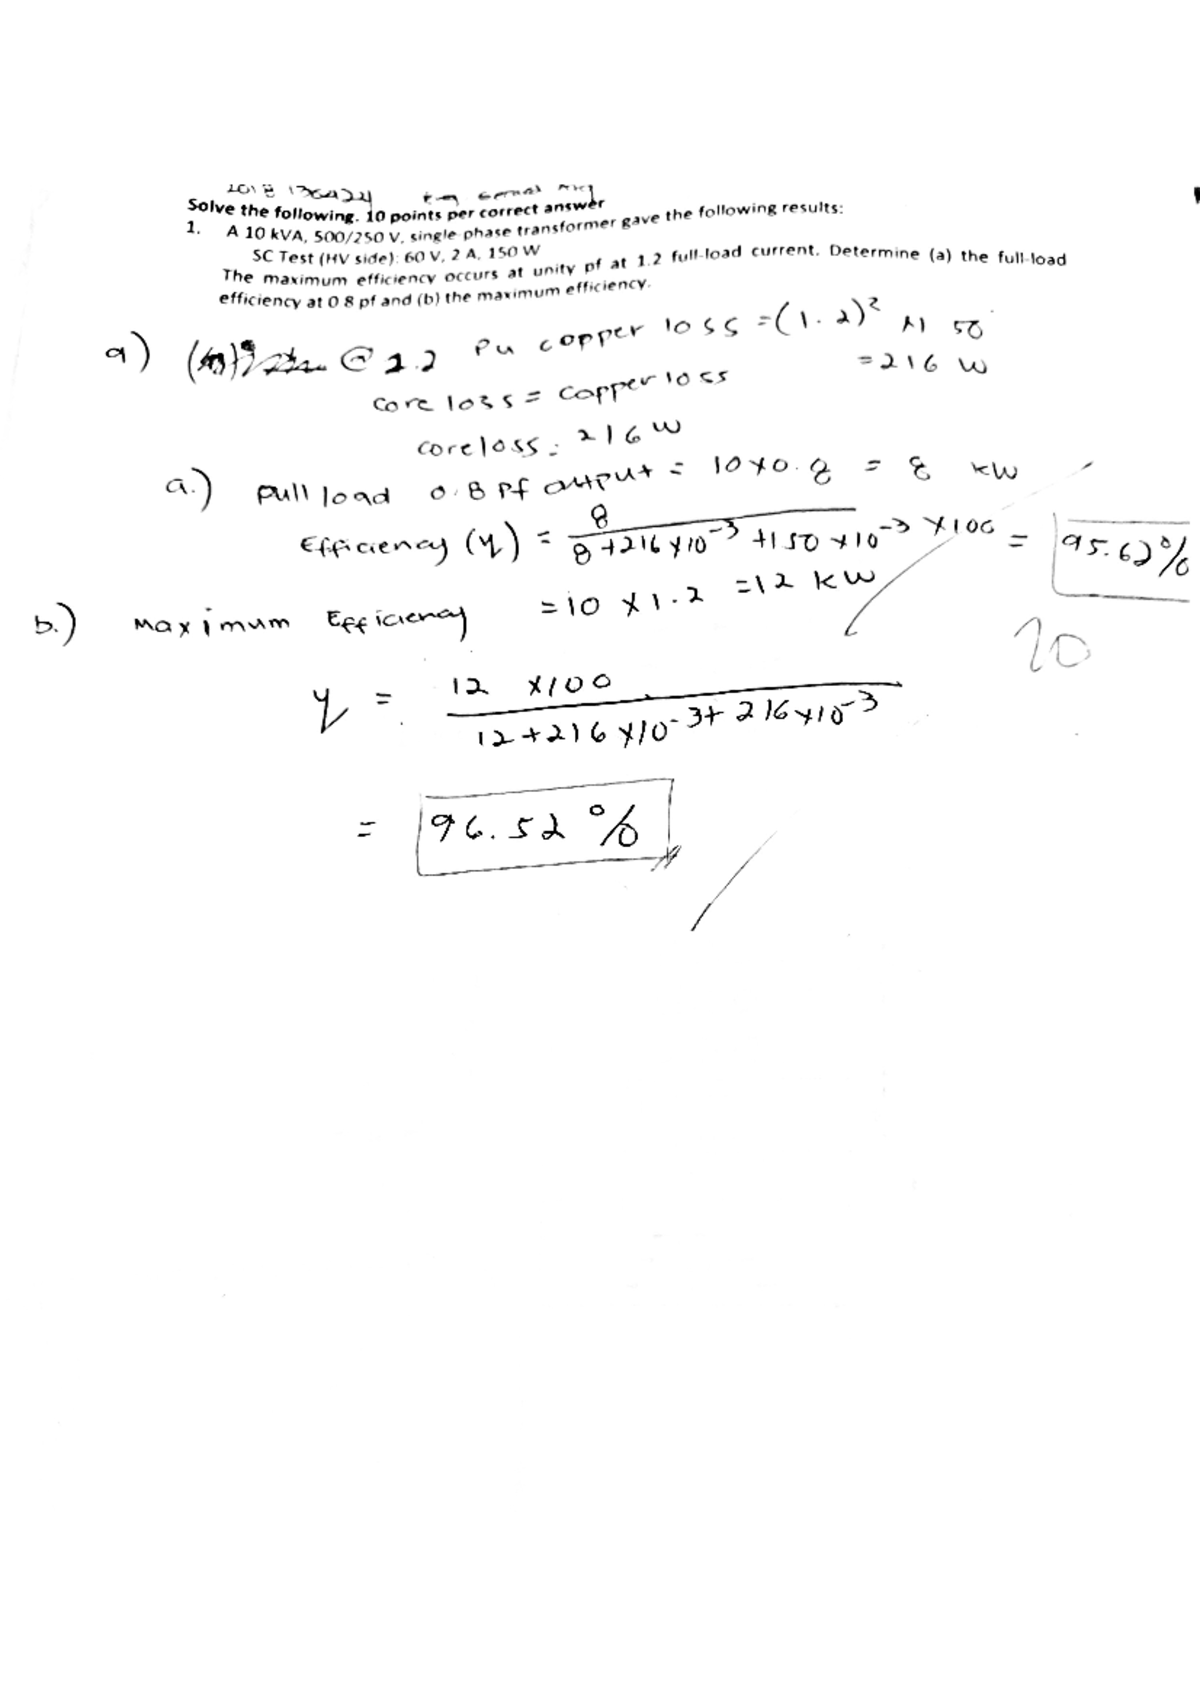 Solve the following. 10 points per correct answer
1. A 10 kVA, 500/250 V, single phase transformer gave the following results:
SC Test (HV side): 60 V, 2 A, 150 W
The maximum efficiency occurs at unity pf at 1.2 full-load current. Determine (a) the full-load
efficiency at 0.8 pf and (b) the maximum efficiency.
a) @ 1.2 Pu copper loss = (1.2)² x150
= 216 W
core loss = copper loss
core loss = 216 W
a.) Full load 0.8 Pf output = 10x0.8 = 8 kW
Efficiency (η) = 8 / 8+216x10-3 +150x10-3 x100 = 95.62%
b.) Maximum Efficiency = 10 x 1.2 = 12 kW
20
η = 12 x100 / 12+216x10-3+ 216x10-3
= 96.52 %